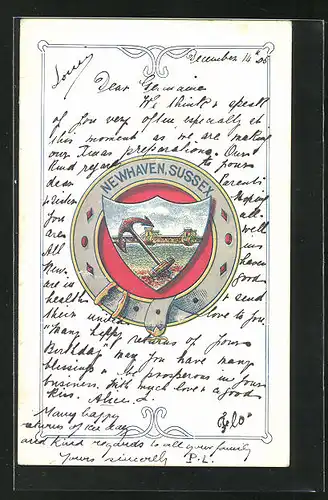 December 14th 05
Dear Germaine
We think & speak
of you very often especially at
this moment as we are making
our Xmas preparations. Our
kind regards to your
dear Parents
& sister hoping
you all
are well
All in
New- haven
are in good
health & send
their united love to you.
"Many happy returns of your
Birthday" may you have many
blessings & be prosperous in your
business. With much love & a good
kiss. Alice L.
NEWHAVEN, SUSSEX
Many happy
returns of the day
and kind regards to all your family
Yours sincerely P. L.